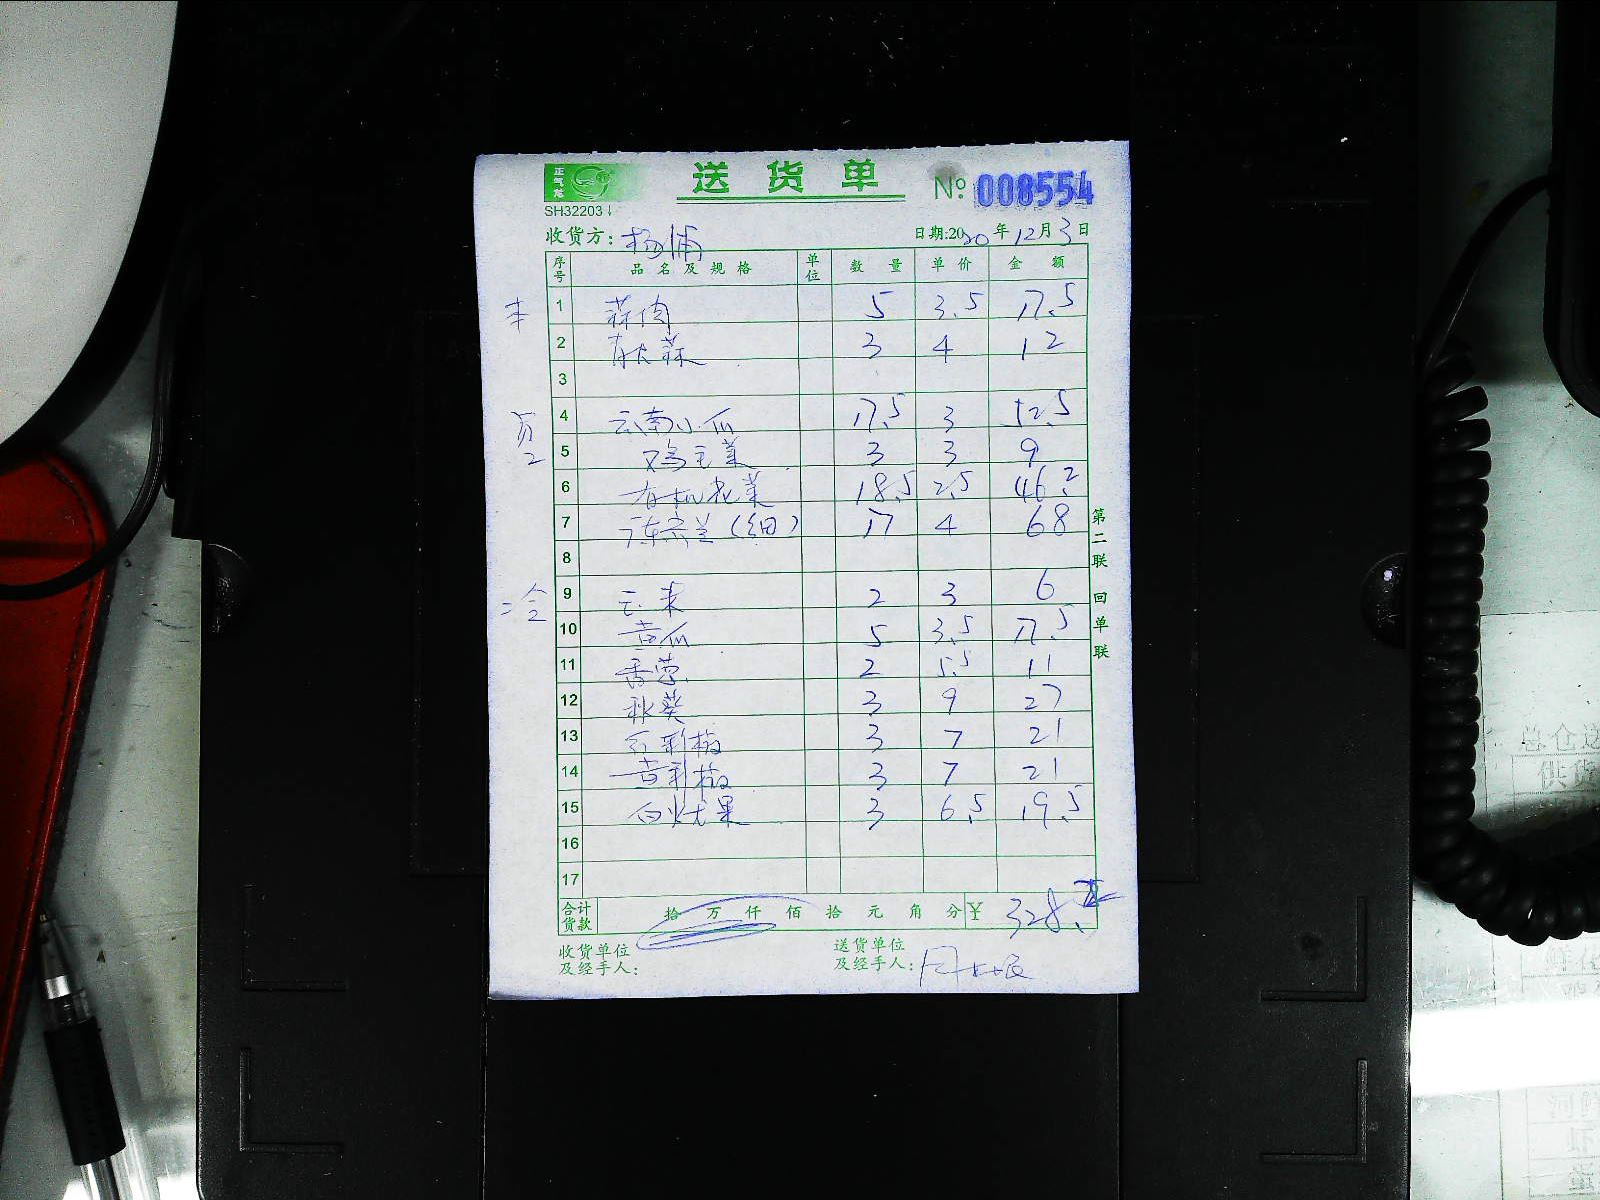 正气龙
送 货 单
№ 008554
SH32203
收货方： 杨浦
日期:2020年12月3日
序号 品名及规格 单位 数量 单价 金额
1 蒜肉 5 3.5 17.5
2 大蒜 3 4 12
3
4 云南小瓜 17.5 3 52.5
员工
5 鸡毛菜 3 3 9
6 有机花菜 18.5 2.5 46.2
7 (细) 17 4 68
8
9 2 3 6
10 黄瓜 5 3.5 17.5
11 香葱 2 5.5 11
12 秋葵 3 9 27
13 红彩椒 3 7 21
14 黄彩椒 3 7 21
15 白火龙果 3 6.5 19.5
16
17
合计货款 拾 万 仟 佰 拾 元 角 分 ¥ 328.
收货单位及经手人：
送货单位及经手人： 周
第二联 回单联